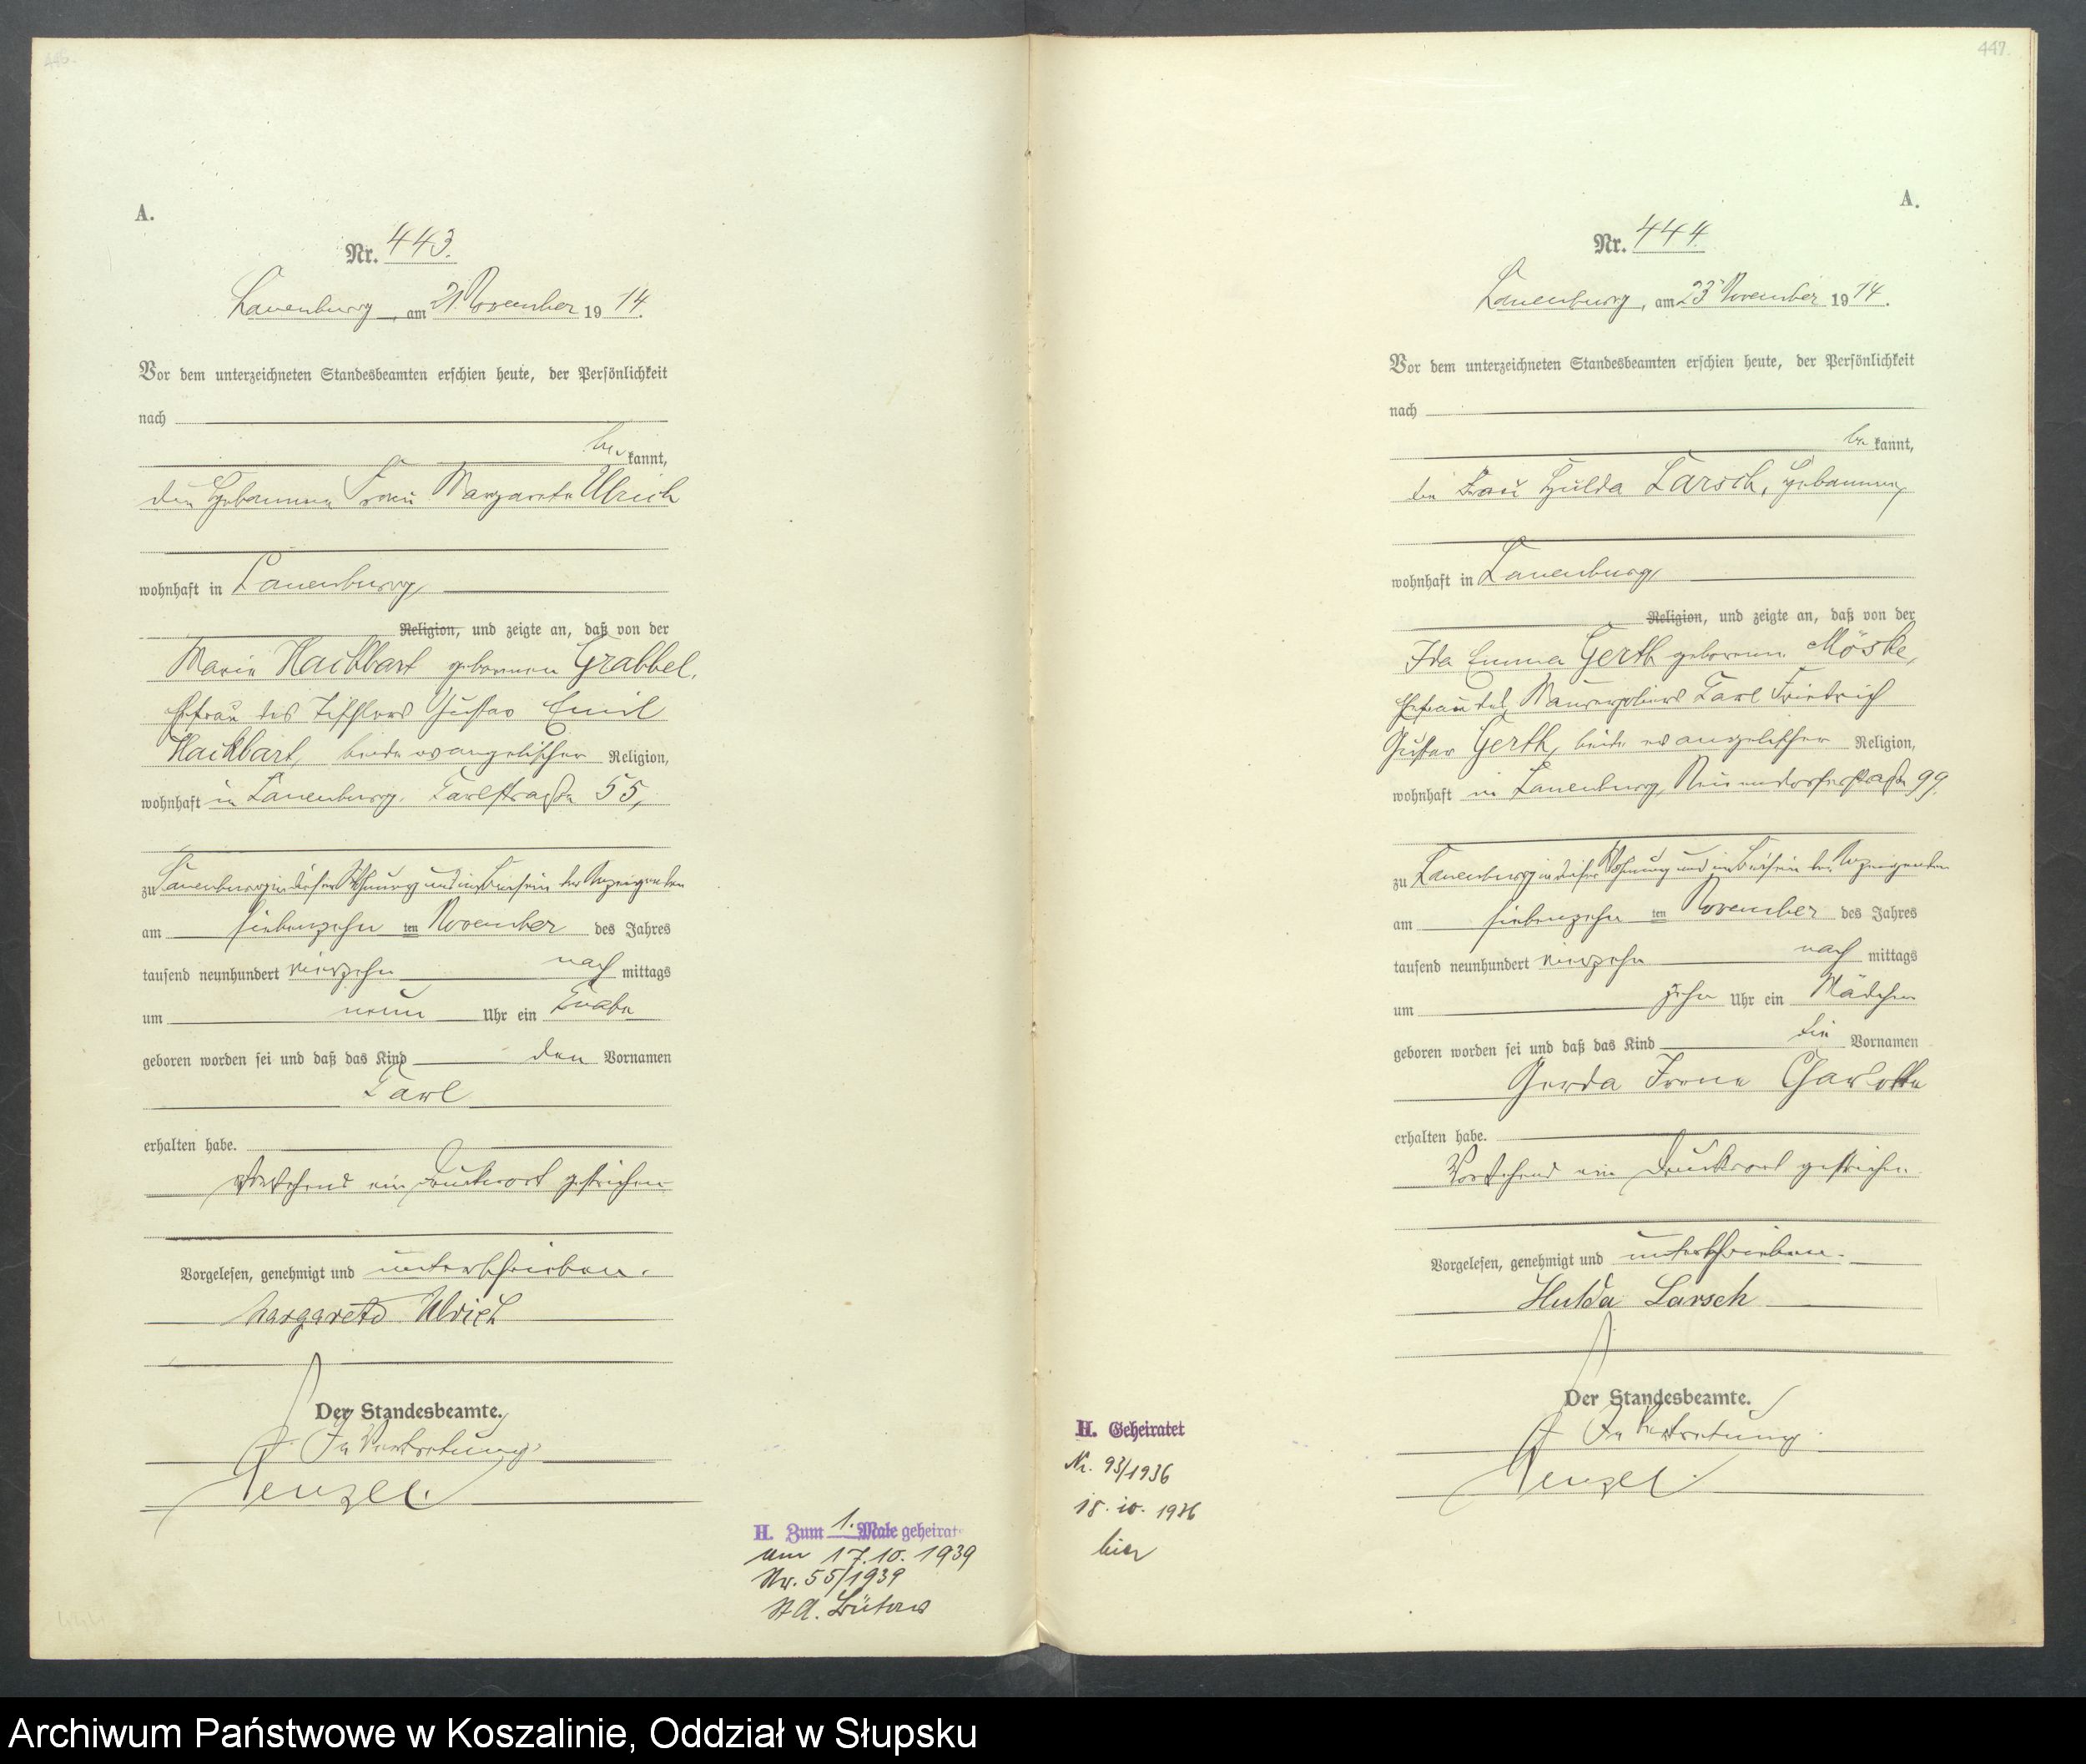 A.
Nr. 443.
Lauenburg, am 21. November 1914.
Vor dem unterzeichneten Standesbeamten erschien heute, der Persönlichkeit
nach
be kannt,
die Hebamme Frau Margarete Ulrich
wohnhaft in Lauenburg
Religion, und zeigte an, daß von der
Marie Hackbart geborenen Grabbel,
Ehefrau des Tischlers Gustav Emil
Hackbart, beide evangelischer Religion,
wohnhaft in Lauenburg, Karlstraße 55,
zu Lauenburg in dieser Wohnung und im Beisein der Anzeigenden
am siebenzehn ten November des Jahres
tausend neunhundert vierzehn nach mittags
um neun Uhr ein Knabe
geboren worden sei und daß das Kind den Vornamen
Karl
erhalten habe.
Vorstehend ein Druckwort gestrichen
Vorgelesen, genehmigt und unterschrieben.
Margarete Ulrich
Der Standesbeamte.
In Vertretung
Wenzel.
H. Zum 1. Male geheirat
am 17.10.1939
Nr. 55/1939
St A. Bütow
447.
A.
Nr. 444.
Lauenburg, am 23. November 1914.
Vor dem unterzeichneten Standesbeamten erschien heute, der Persönlichkeit
nach
be kannt,
die Frau Hulda Larsch, Hebamme,
wohnhaft in Lauenburg
Religion, und zeigte an, daß von der
Ida Emma Gerth geborene Möske,
Ehefrau des Maurerpoliers Karl Friedrich
Gustav Gerth, beide evangelischer Religion,
wohnhaft in Lauenburg, Neuendorferstraße 99,
zu Lauenburg in dieser Wohnung und im Beisein der Anzeigenden
am siebenzehn ten November des Jahres
tausend neunhundert vierzehn nach mittags
um zehn Uhr ein Mädchen
geboren worden sei und daß das Kind die Vornamen
Gerda Irene Charlotte
erhalten habe.
Vorstehend ein Druckwort gestrichen.
Vorgelesen, genehmigt und unterschrieben.
Hulda Larsch
Der Standesbeamte.
In Vertretung
Wenzel.
H. Geheiratet
Nr. 93/1936
18.10.1936
hier
Archiwum Państwowe w Koszalinie, Oddział w Słupsku